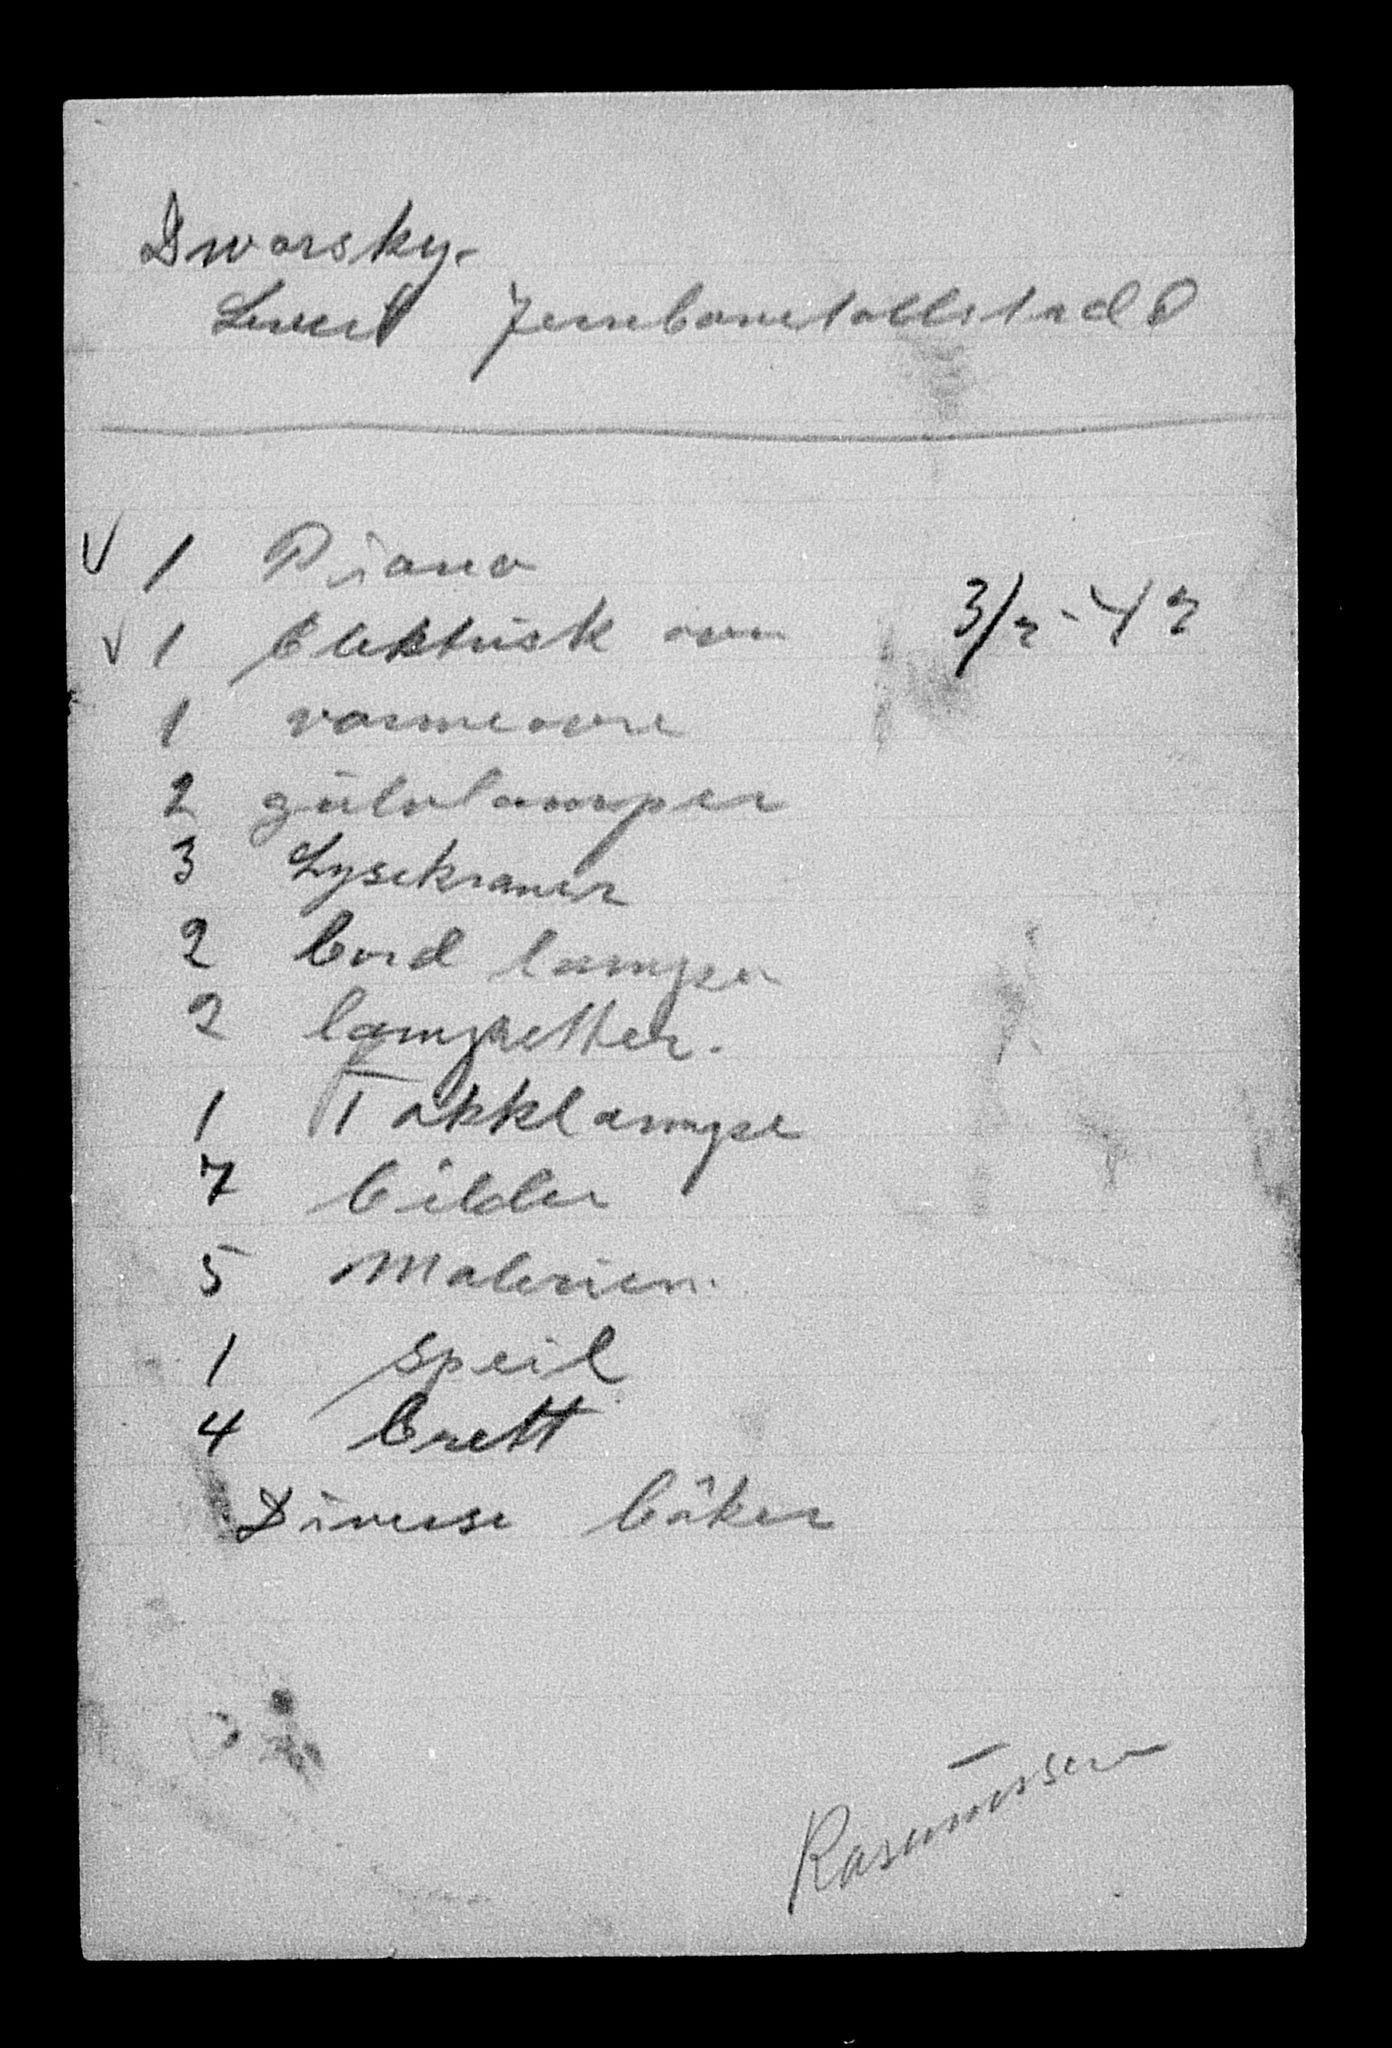 Dworsky.
Levert Jernbanetollsted
✓ 1 Piano
✓ 1 Elektrisk ovn 3/2-42
1 varmeovn
2 gülvlamper
3 Lysekraner
2 bord lamper
2 lampetter.
1 Takklampe
7 bilder
5 Malerier.
1 speil
4 brett
Diverse bøker
Rasmüssen